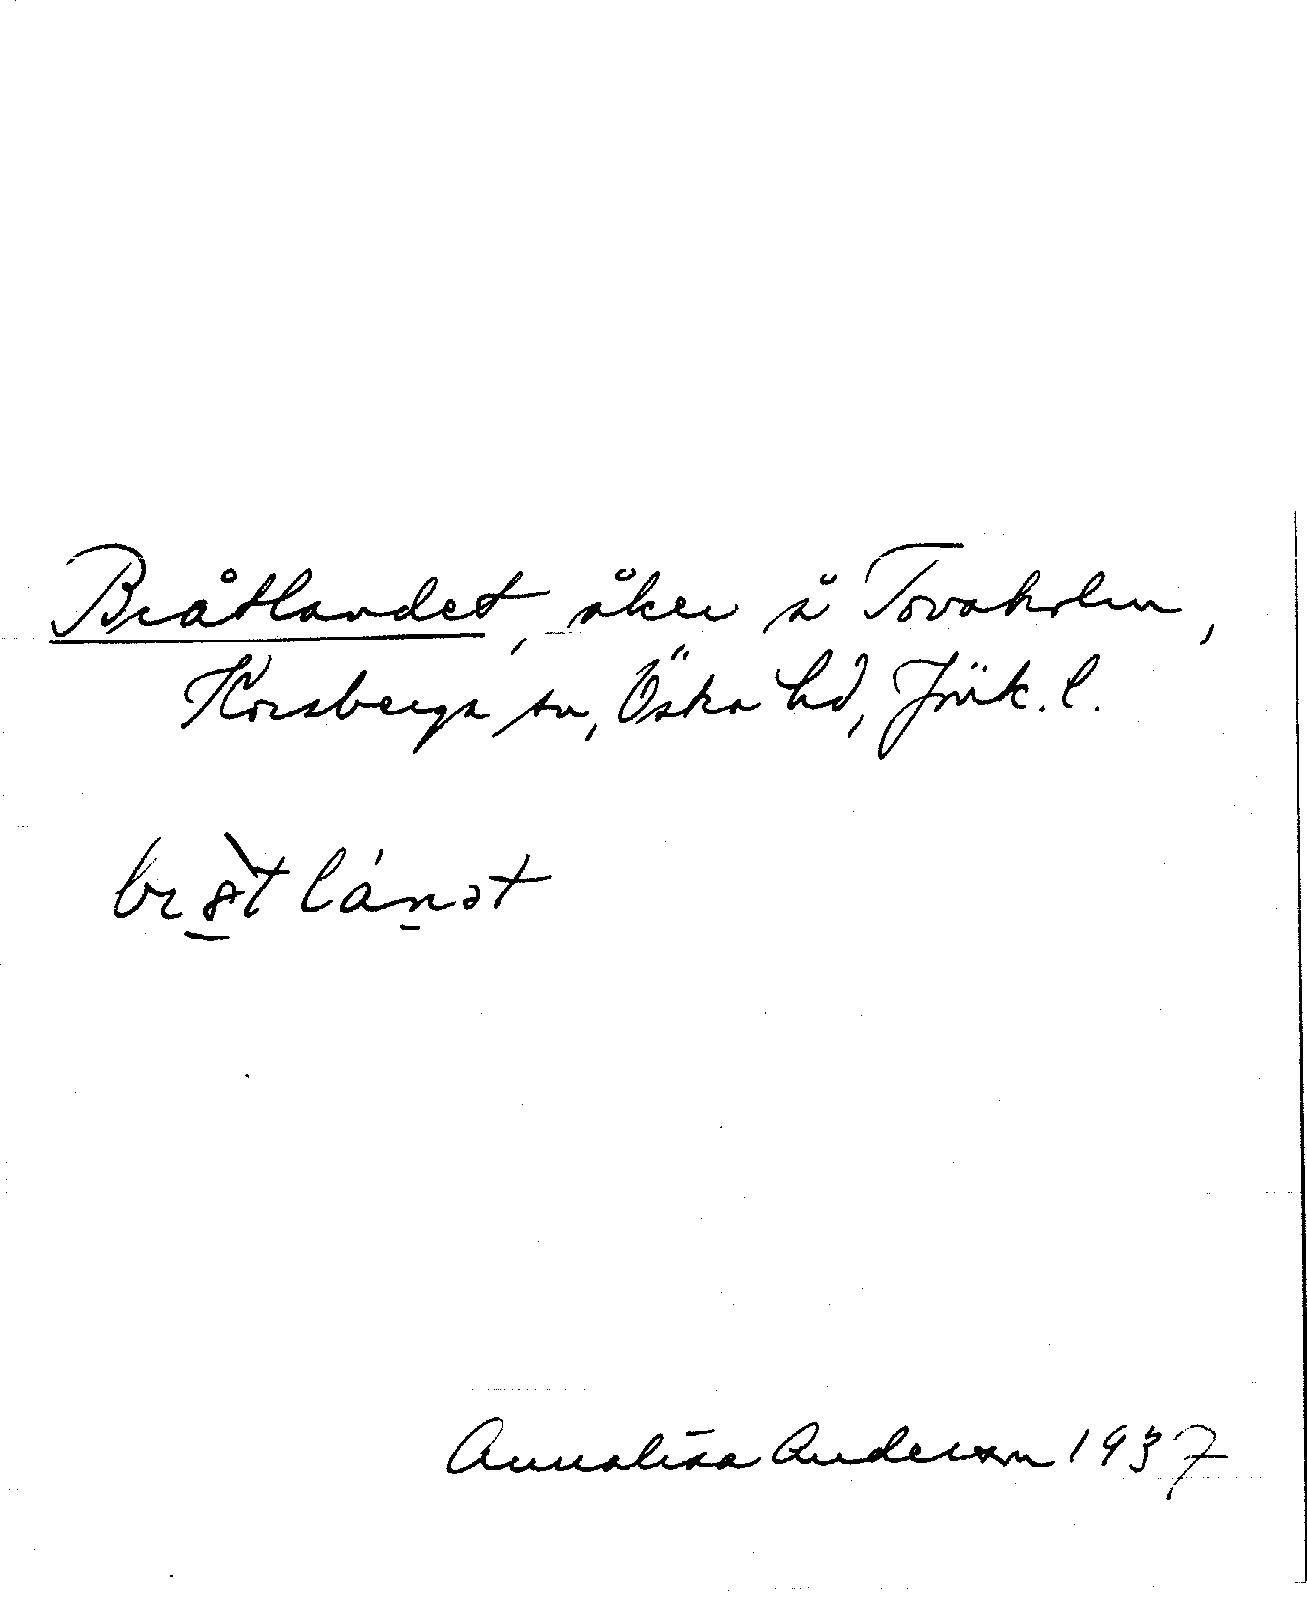 Bråtlandet, åker å Tovaholm,
Korsberga sn, Östra hd, Jönk. l.
Annalisa Anderson 1937